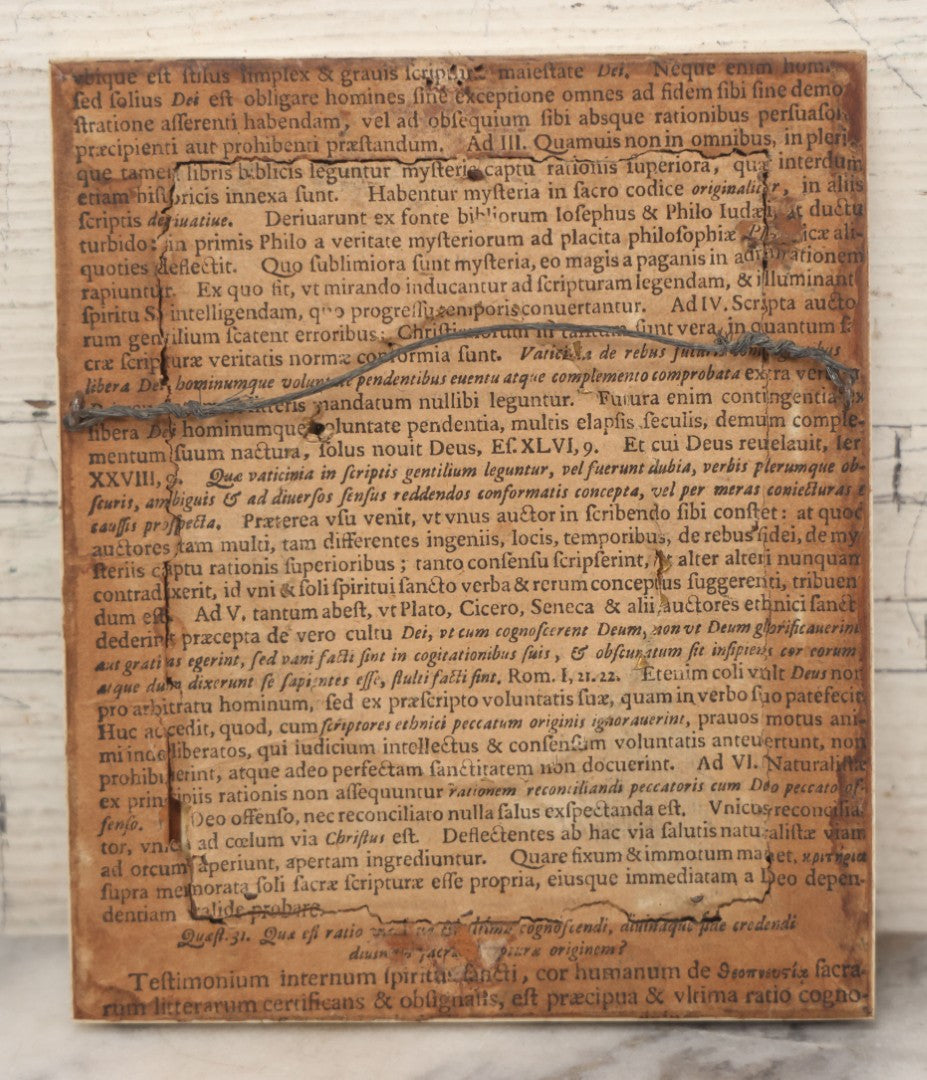 vbique est stilus simplex & grauis scripturæ maiestate Dei. Neque enim
sed solius Dei est obligare homines sine exceptione omnes ad fidem sibi sine demo
ſtratione aſſerenti habendam, vel ad obſequium ſibi absque rationibus perſuaſo
præcipienti aut prohibenti præſtandum. Ad III. Quamuis non in omnibus, in pleri
que tamen libris biblicis leguntur myſteria captu rationis ſuperiora, quæ interdum
etiam hiſtoricis innexa ſunt. Habentur myſteria in ſacro codice originaliter, in aliis
ſcriptis deriuatiue. Deriuarunt ex fonte bibliorum Ioſephus & Philo Iudæi, at ductu
turbido: in primis Philo a veritate myſteriorum ad placita philoſophiæ Platonicæ ali-
quoties deflectit. Quo ſublimiora ſunt myſteria, eo magis a paganis in admirationem
rapiuntur. Ex quo fit, vt mirando inducantur ad ſcripturam legendam, & illuminant
ſpiritu S. intelligendam, quo progreſſu temporis conuertantur. Ad IV. Scripta aucto
rum gentilium ſcatent erroribus: Chriſtianorum in tantum ſunt vera, in quantum ſa
cræ ſcripturæ veritatis normæ conformia ſunt. Vaticinia de rebus futuris
libera Dei hominumque voluntate pendentibus euentu atque complemento comprobata extra
litteris mandatum nullibi leguntur. Futura enim contingentia ex
libera Dei hominumque voluntate pendentia, multis elapſis ſeculis, demum comple-
mentum ſuum nactura, ſolus nouit Deus, Eſ. XLVI, 9. Et cui Deus reuelauit, Ier
XXVIII, 9. Quæ vaticinia in ſcriptis gentilium leguntur, vel fuerunt dubia, verbis plerumque ob-
ſcuris, ambiguis & ad diuerſos ſenſus reddendos conformatis concepta, vel per meras coniecturas e
cauſſis proſpecta. Præterea vſu venit, vt vnus auctor in ſcribendo ſibi conſtet: at quod
auctores tam multi, tam differentes ingeniis, locis, temporibus, de rebus fidei, de my
ſteriis captu rationis ſuperioribus; tanto conſenſu ſcripſerint, vt alter alteri nunquam
contradixerit, id vni & ſoli ſpiritui ſancto verba & rerum conceptus ſuggerenti, tribuen
dum eſt. Ad V. tantum abeſt, vt Plato, Cicero, Seneca & alii auctores ethnici ſanct
dederint præcepta de vero cultu Dei, vt cum cognoſcerent Deum, non vt Deum glorificauerint
aut gratias egerint, ſed vani facti ſint in cogitationibus ſuis, & obſcuratum ſit inſipiens cor eorum
atque dum dixerunt ſe ſapientes eſſe, ſtulti facti ſint. Rom. I, 21. 22. Etenim coli vult Deus non
pro arbitratu hominum, ſed ex præſcripto voluntatis ſuæ, quam in verbo ſuo patefecit
Huc accedit, quod, cum ſcriptores ethnici peccatum originis ignorauerint, prauos motus ani-
mi indeliberatos, qui iudicium intellectus & conſenſum voluntatis anteuertunt, non
prohibuerint, atque adeo perfectam ſanctitatem non docuerint. Ad VI. Naturaliſtæ
ex principiis rationis non aſſequuntur rationem reconciliandi peccatoris cum Deo peccato of-
fenſo. Deo offenſo, nec reconciliato nulla ſalus exſpectanda eſt. Vnicus reconcilia
tor, vnica ad cœlum via Chriſtus eſt. Deflectentes ab hac via ſalutis naturaliſtæ viam
ad orcum aperiunt, apertam ingrediuntur. Quare fixum & immotum manet, κριτήρια
ſupra memorata ſoli ſacræ ſcripturæ eſſe propria, eiusque immediatam a Deo depen-
dentiam valide probare.
Quæſt. 31. Quæ eſt ratio vltima cognoſcendi, diuinaque fide credendi
diuinam ſacræ ſcripturæ originem?
Teſtimonium internum ſpiritus ſancti, cor humanum de θεοπνευςίᾳ ſacra-
rum litterarum certificans & obſignans, eſt præcipua & vltima ratio cogno-